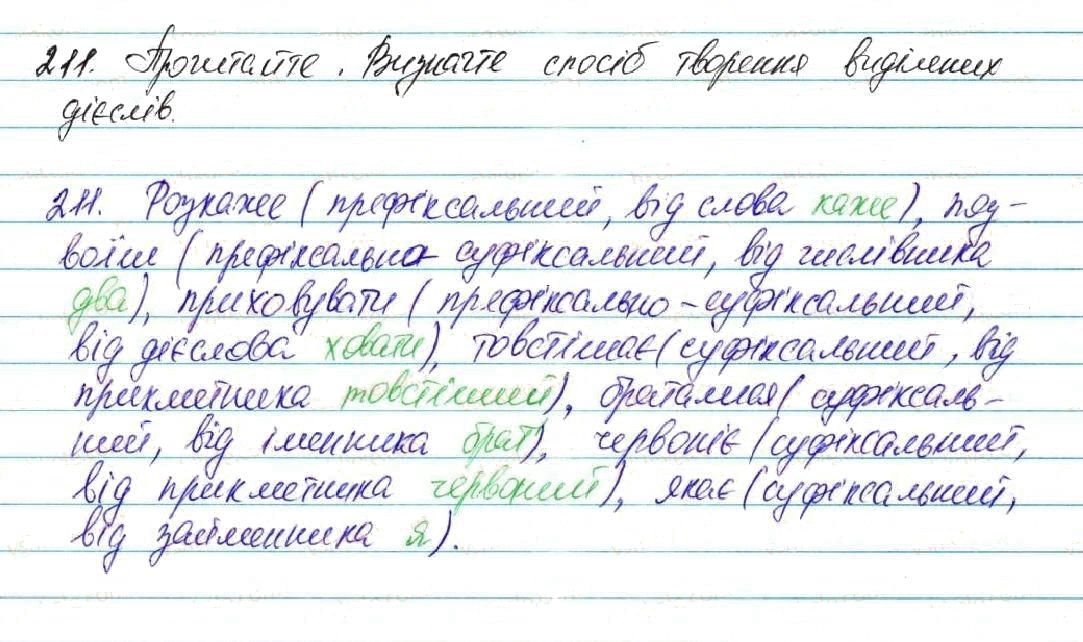 211. Прочитайте. Визначте спосіб творення виділених
дієслів.
211. Розкаже (префіксальний, від слова каже), под-
воїш (префіксально-суфіксальний, від числівника
два), приховувати (префіксально-суфіксальний,
від дієслова ховати), товстішає (суфіксальний, від
прикметника товстіший), браталися (суфіксаль-
ний, від іменника брат), червоніє (суфіксальний,
від прикметника червоний), якає (суфіксальний,
від займенника я).